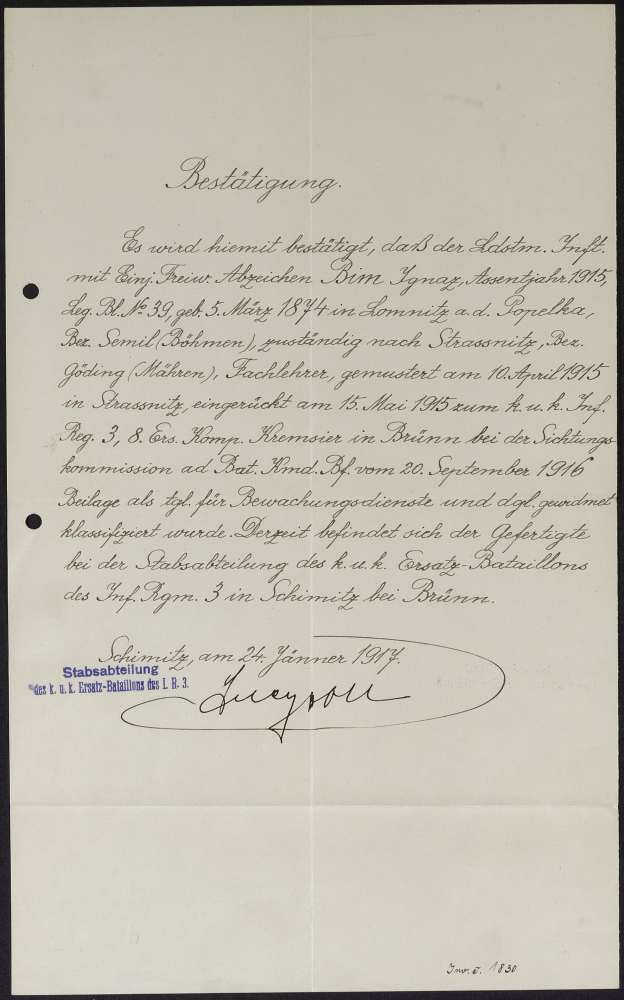 Bestätigung.
Es wird hiemit bestätigt, daß der Ldstm. Inft.
mit Einj. Freiw. Abzeichen Bim Ignaz, Assentjahr 1915,
Leg. Bl. № 39, geb. 5. März 1874 in Lomnitz a. d. Popelka,
Bez. Semil (Böhmen), zuständig nach Strassnitz, Bez.
Göding (Mähren), Fachlehrer, gemustert am 10. April 1915
in Strassnitz, eingerückt am 15. Mai 1915 zum k. u. k. Inf.
Reg. 3, 8. Ers. Komp. Kremsier in Brünn bei der Sichtungs-
kommission ad Bat. Kmd. Bf. vom 20. September 1916
Beilage als tgl. für Bewachungsdienste und dgl. gewidmet
klassifiziert wurde. Derzeit befindet sich der Gefertigte
bei der Stabsabteilung des k. u. k. Ersatz-Bataillons
des Inf. Rgm. 3 in Schimitz bei Brünn.
Schimitz, am 24. Jänner 1917.
Stabsabteilung
des k. u. k. Ersatz-Bataillons des I. R. 3.
Inv. č. 1830